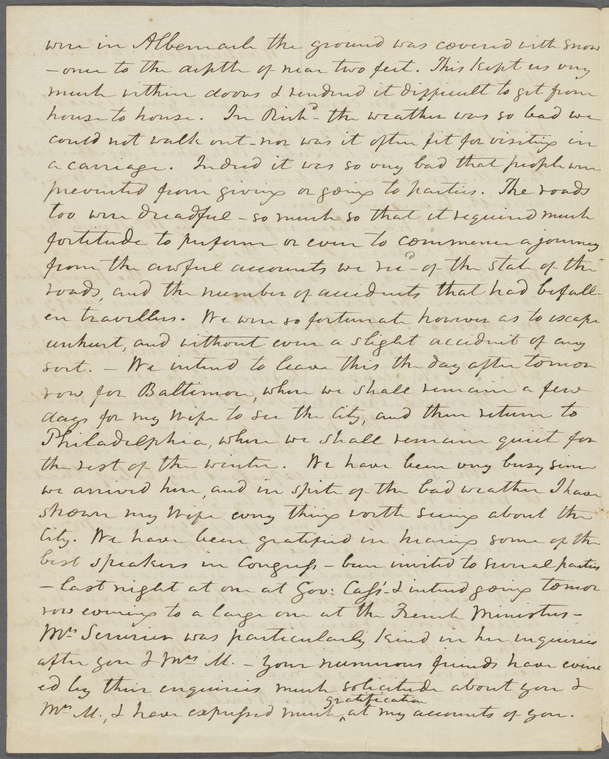 were in Albemarle the ground was covered with snow
- once to the depth of near two feet. This kept us very
much within doors & rendered it difficult to get from
house to house. In Richd. the weather was so bad we
could not walk out - nor was it often fit for visiting in
a carriage. Indeed it was so very bad that people were
prevented from giving or going to parties. The roads
too were dreadful - so much so that it required much
fortitude to perform or even to commence a journey
from the awful accounts we recd. of the state of the
roads, and the number of accidents that had befall-
en travellers. We were so fortunate however as to escape
unhurt, and without even a slight accident of any
sort. - We intend to leave this the day after tomor
row for Baltimore, where we shall remain a few
days for my Wife to see the City, and then return to
Philadelphia, where we shall remain quiet for
the rest of the winter. We have been very busy since
we arrived here, and in spite of the bad weather I have
shown my Wife every thing worth seeing about the
City. We have been gratified in hearing some of the
best speakers in Congress - been invited to several parties
- last night at one at Gov: Cass's & intend going tomor
row evening to a large one at the French Ministers -
Mrs. Serurier was particularly kind in her inquiries
after you & Mrs. M. - Your numerous friends have evinc
ed by their enquiries much solicitude about you &
Mrs. M., & have expressed much gratification at my accounts of you.